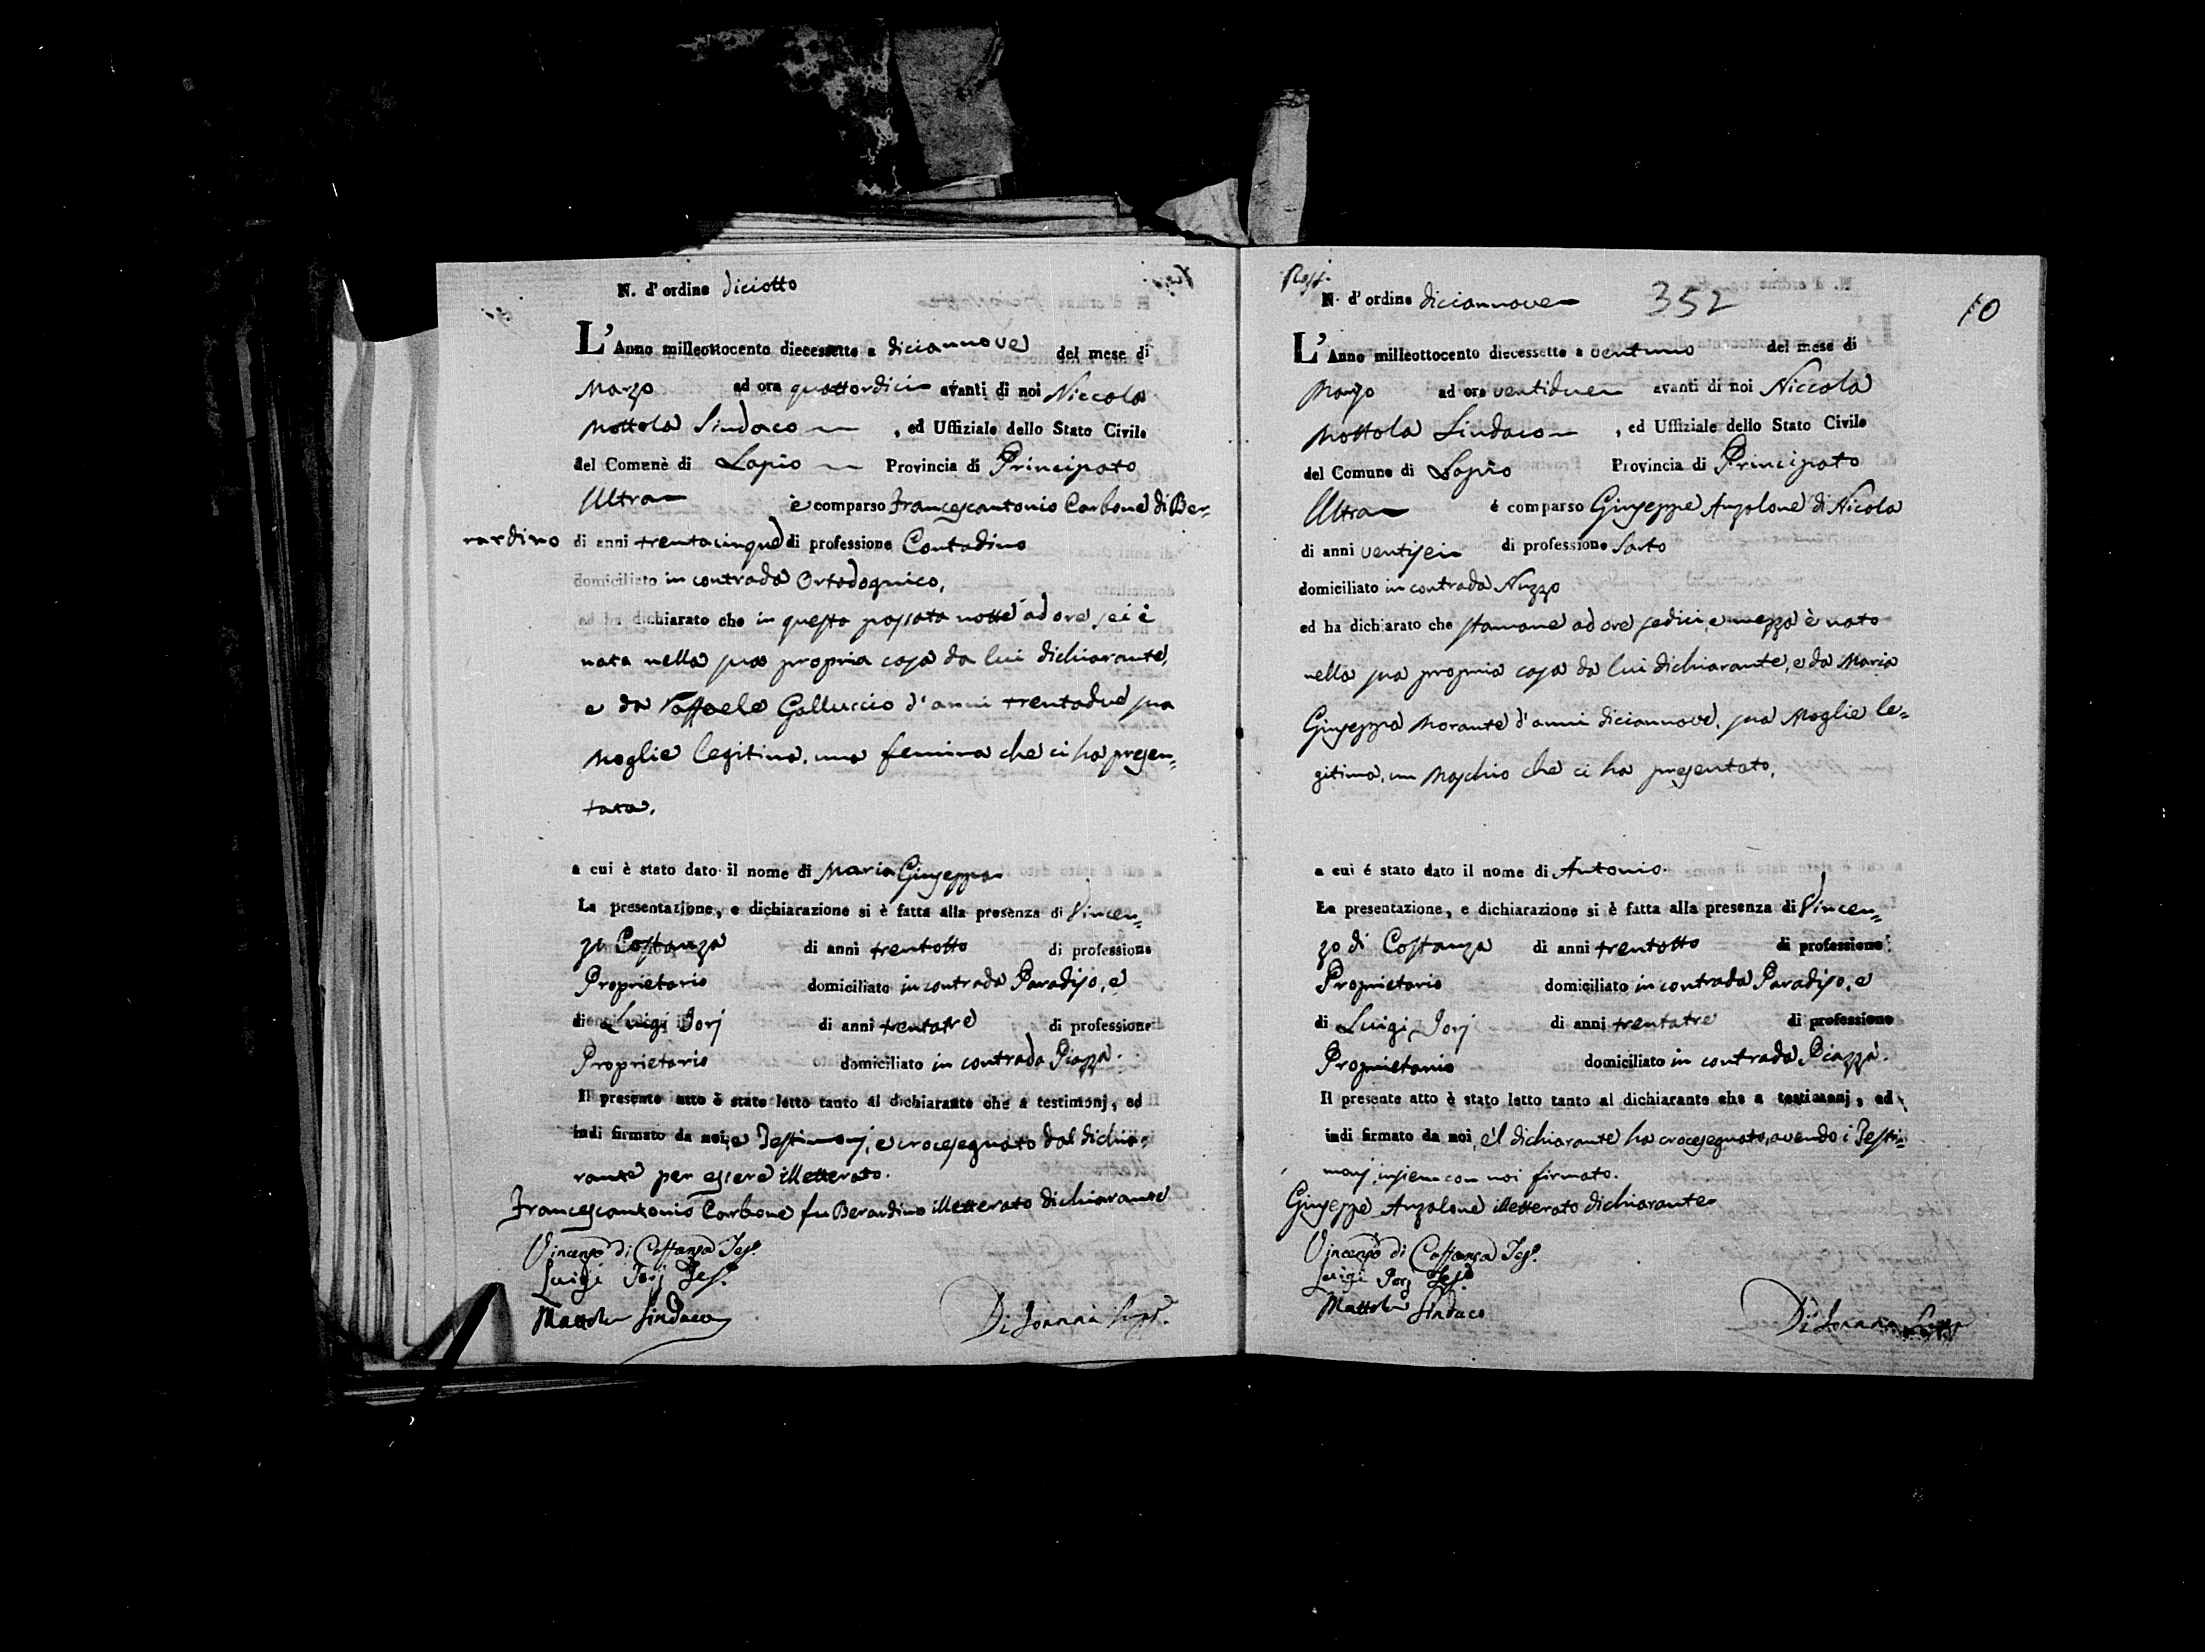 N. d'ordine diciotto
L'Anno milleottocento diecessette a diciannove del mese di
Marzo ad ora quattordici avanti di noi Niccola
Mottola Sindaco , ed Uffiziale dello Stato Civile
del Comune di Lapio Provincia di Principato
Ultra è comparso Francescantonio Carbone di Ber=
rardino di anni trentacinque di professione Contadino
domiciliato in contrada Ortodognico,
ed ha dichiarato che in questa passata notte ad ore sei è
nata nella sua propria casa da lui dichiarante,
e da Raffaela Galluccio d'anni trentadue sua
Moglie legitima, una femina che ci ha presen=
tata.
a cui è stato dato il nome di Maria Giuseppa
La presentazione, e dichiarazione si è fatta alla presenza di Vincen=
zo Costanza di anni trentotto di professione
Proprietario domiciliato in contrada Paradiso, e
di Luigi Iorj di anni trentatre di professione
Proprietario domiciliato in contrada Piazza.
Il presente atto è stato letto tanto al dichiarante che a testimonj, ed
indi firmato da noi, e Testimonj, e crocesegnato dal dichia=
rante per essere illetterato.
Francescantonio Carbone fu Berardino illetterato dichiarante
Vincenzo di Costanza Tes.o
Luigi Iorj Tes.o
Mottola Sindaco
Ross.
N. d'ordine diciannove 352 10
L'Anno milleottocento diecessette a ventuno del mese di
Marzo ad ore ventidue avanti di noi Niccola
Mottola Sindaco , ed Uffiziale dello Stato Civile
del Comune di Lapio Provincia di Principato
Ultra é comparso Giuseppe Anzalone di Nicola
di anni ventisei di professione Sarto
domiciliato in contrada Nuzzo
ed ha dichiarato che stamane ad ore sedici, e mezza è nato
nella sua propria casa da lui dichiarante, e da Maria
Giuseppa Morante d'anni diciannove, sua Moglie le=
gitima, un Maschio che ci ha presentato,
a cui é stato dato il nome di Antonio
La presentazione, e dichiarazione si è fatta alla presenza di Vincen=
zo di Costanza di anni trentotto di professione
Proprietario domiciliato in contrada Paradiso, e
di Luigi Iorj di anni trentatre di professione
Proprietario domiciliato in contrada Piazza.
Il presente atto è stato letto tanto al dichiarante che a testimonj, ed
indi firmato da noi, e'l dichiarante ha crocesegnato, avendo i Testi=
monj insiem con noi firmato.
Giuseppe Anzalone illetterato dichiarante
Vincenzo di Costanza Tes.o
Luigi Iorj Tes.o
Mottola Sindaco